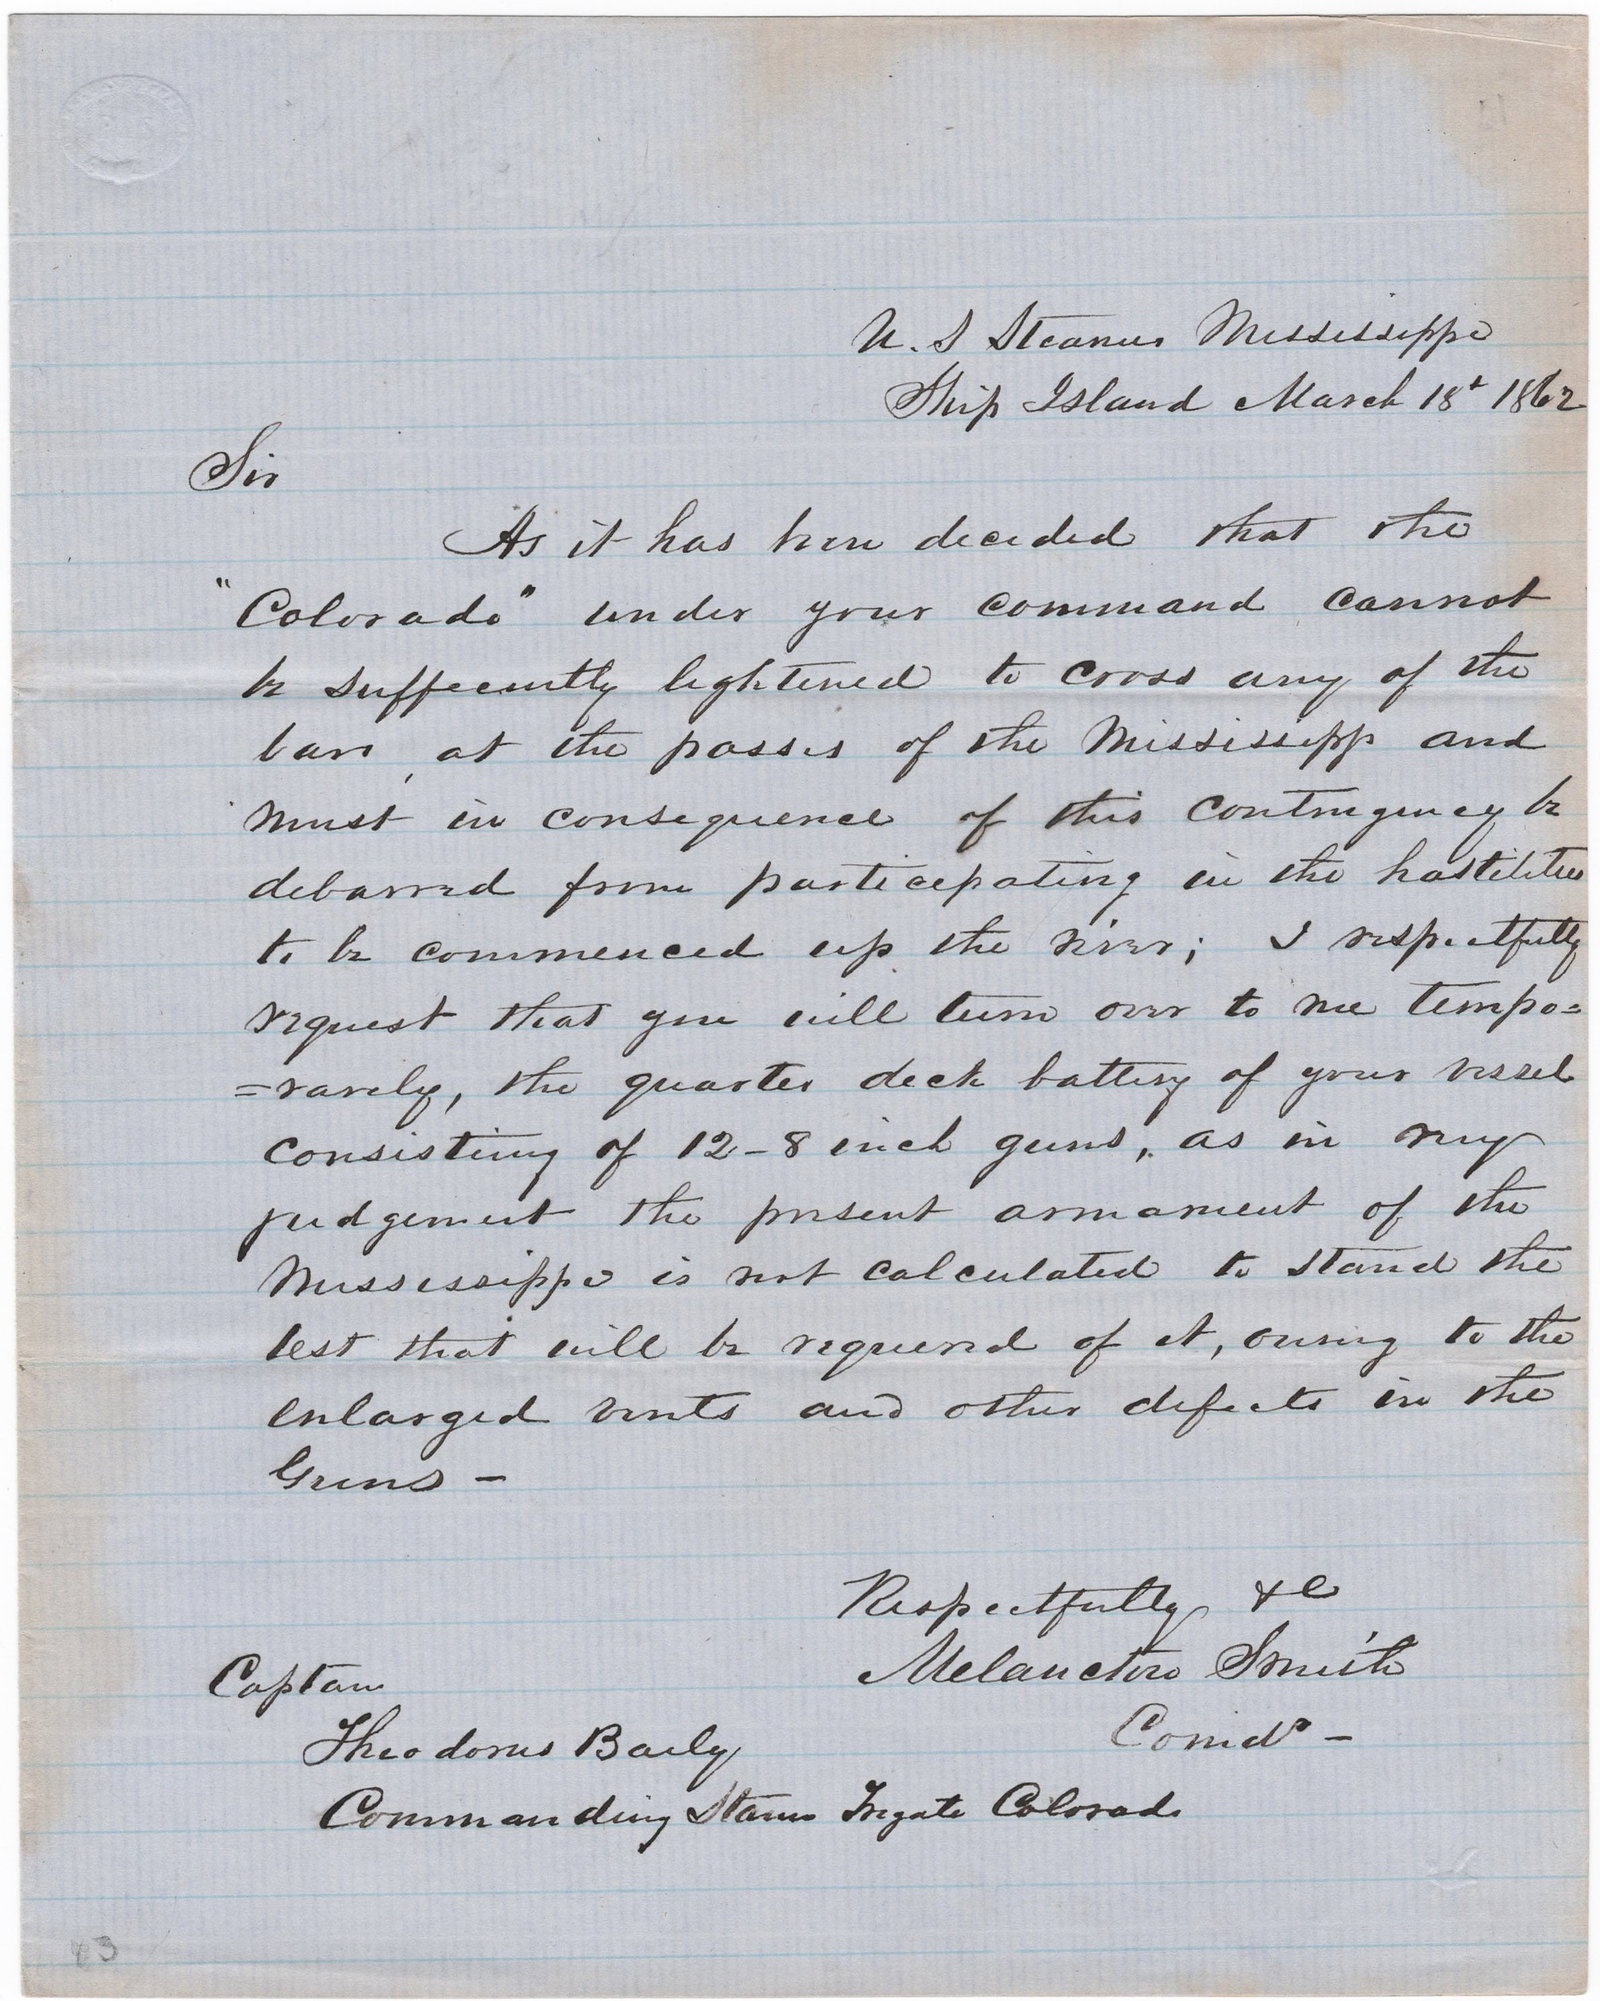 U. S Steamer Mississippi
Ship Island March 18t 1862
Sir
As it has been decided that the
"Colorado" under your command cannot
be sufficiently lightened to cross any of the
bars, at the passes of the Mississippi and
must in consequence of this contingency be
debarred from participating in the hostilities
to be commenced up the river; I respectfully
request that you will turn over to me tempo=
=rarily, the quarter deck battery of your vessel
consisting of 12-8 inch guns, as in my
judgement the present armament of the
Mississippi is not calculated to stand the
test that will be required of it, owing to the
enlarged vents and other defects in the
Guns -
Respectfully &c
Melancton Smith
Comdr -
Captain
Theodorus Baily
Commanding Steam Frigate Colorado
83